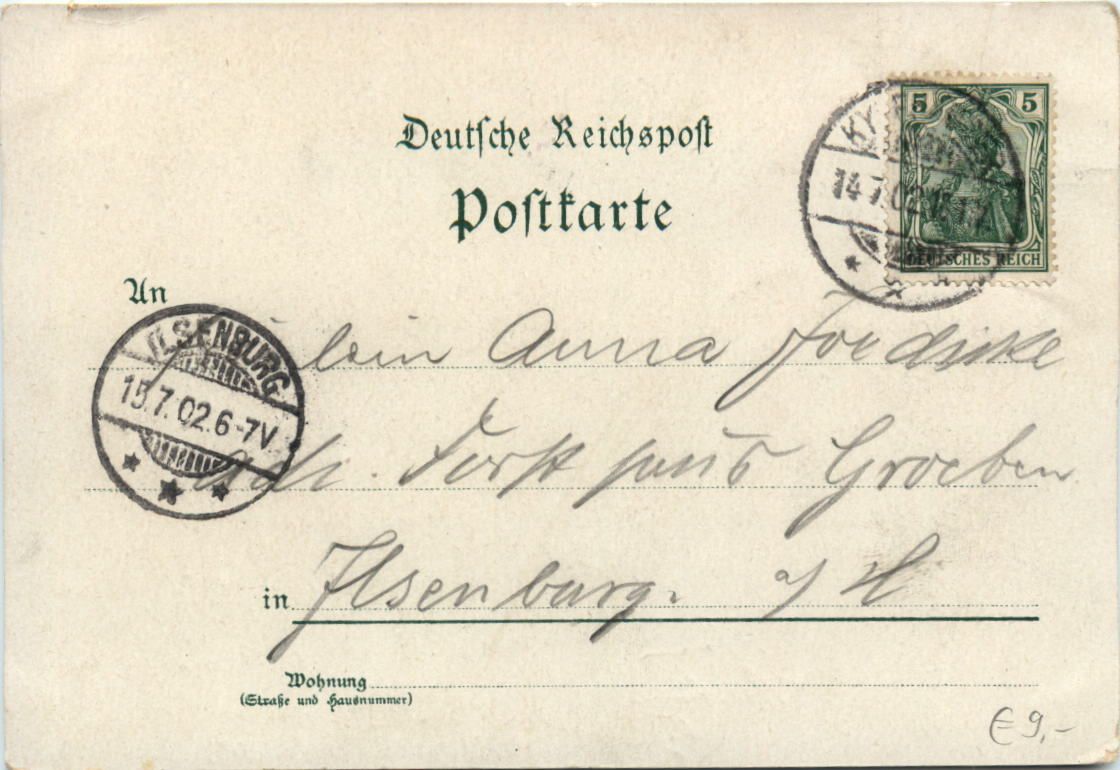 Deutsche Reichspost
Postkarte
5 5
DEUTSCHES REICH
14.7.02
An
ILSENBURG
15.7.02.6-7V
lein Anna
Forsthaus Groeben
in Ilsenburg. a/H
Wohnung
(Straße und Hausnummer)
€9,-